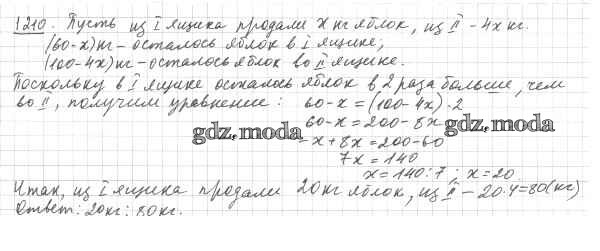 1210. Пусть из I ящика продали x кг яблок, из II - 4x кг.
(60-x)кг - осталось яблок в I ящике;
(100-4x)кг - осталось яблок во II ящике.
Поскольку в I ящике осталось яблок в 2 раза больше, чем
во II, получим уравнение: 60-x = (100-4x)·2
60-x = 200-8x
gdz.moda
gdz.moda
-x+8x = 200-60
7x = 140
x = 140:7 ; x = 20.
Итак, из I ящика продали 20 кг яблок, из II - 20·4=80(кг)
Ответ: 20кг; 80кг.